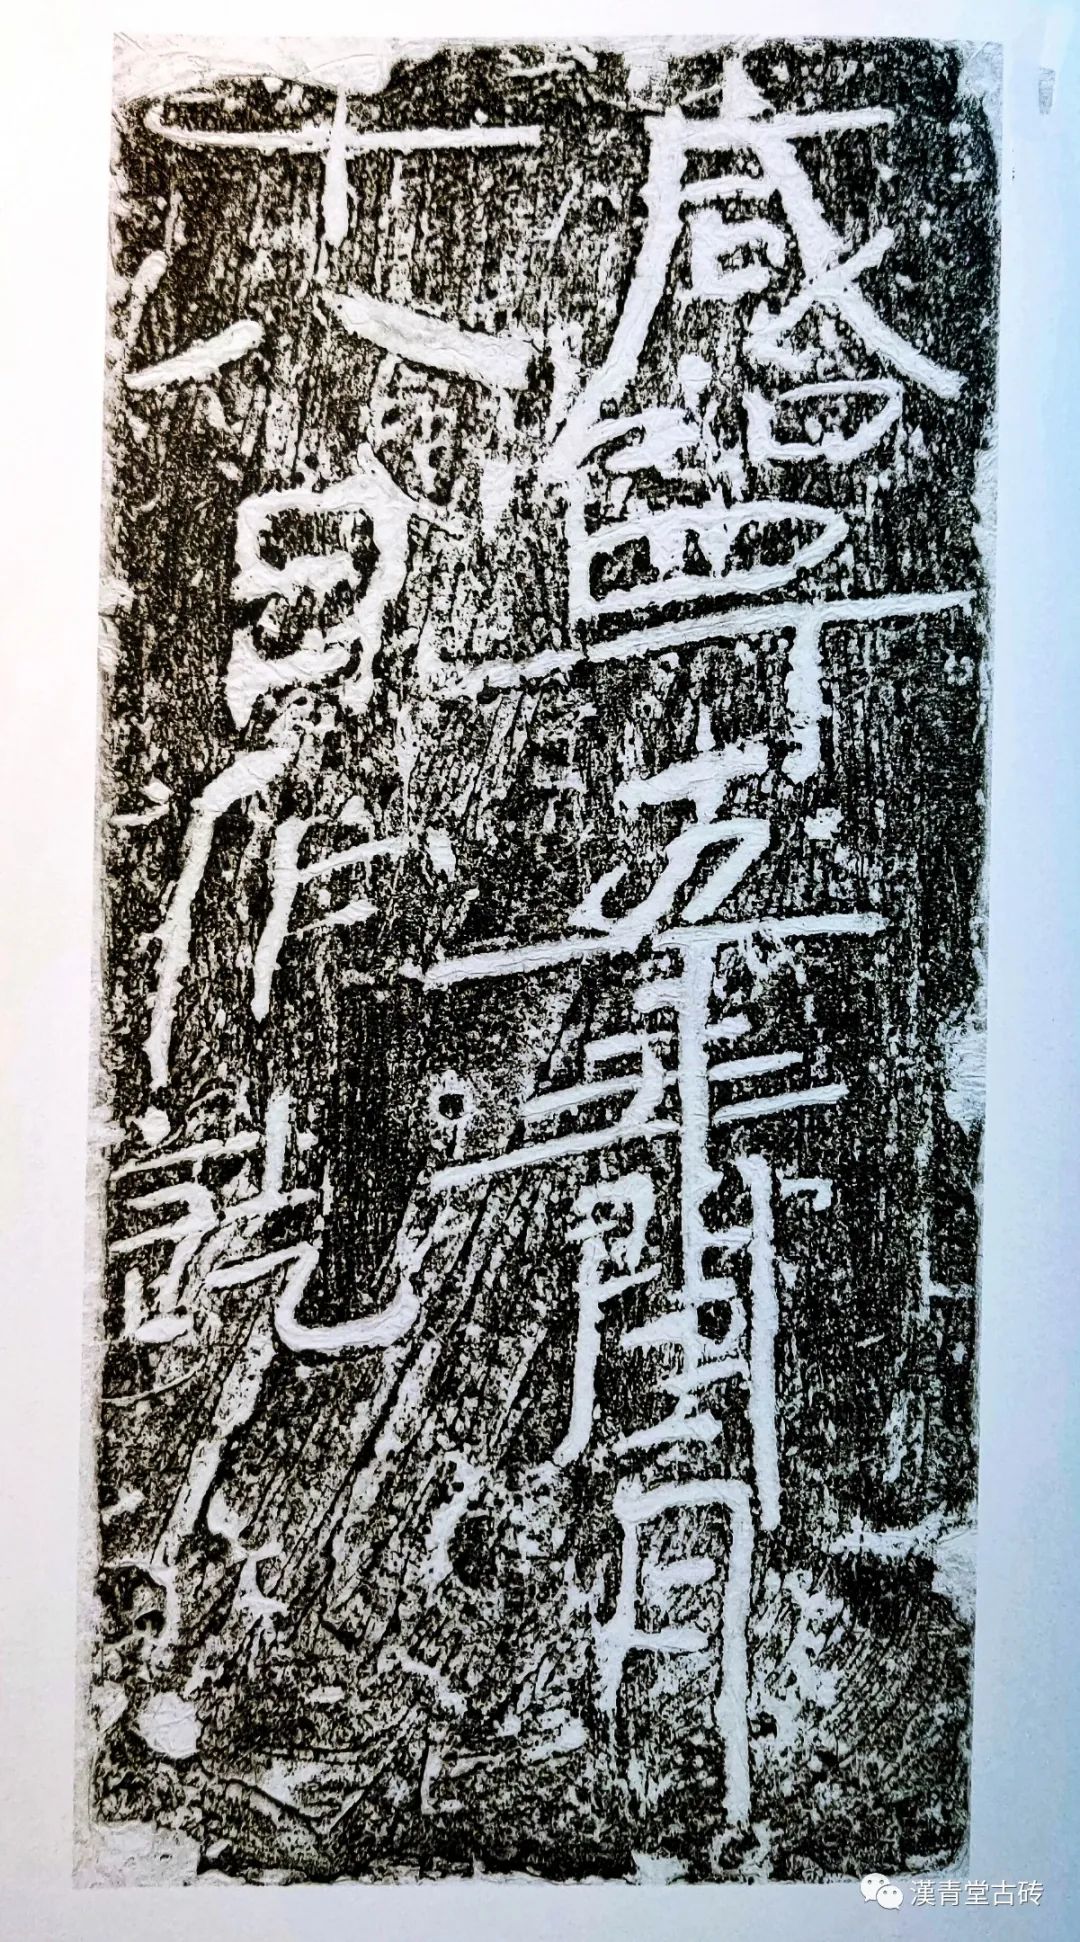 咸寧五年閏月
十八日作訖
漢青堂古砖